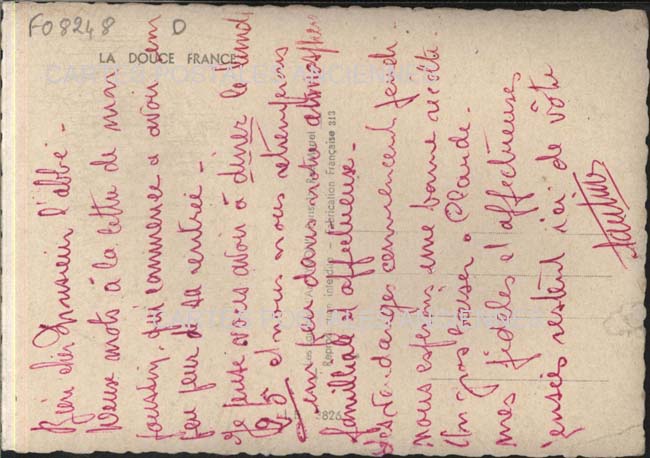 F08248
D
LA DOUCE FRANCE
CARTES POSTALES ANCIENNES
Bien cher Monsieur l'abbé -
Deux mots à la lettre de mon
poussin, qui commence à avoir un
peu peur de sa rentrée -
Je pense vous avoir à dîner le lundi
et nous nous retremperons
ensemble dans notre atmosphère
familiale et affectueuse -
Les vendanges commencent jeudi
nous espérons une bonne récolte.
Un gros baiser à Claude -
mes fidèles et affectueuses
pensées restent ici de vôtre
Reproduction interdite - Fabrication Française 313
CARTES POSTALES ANCIENNES